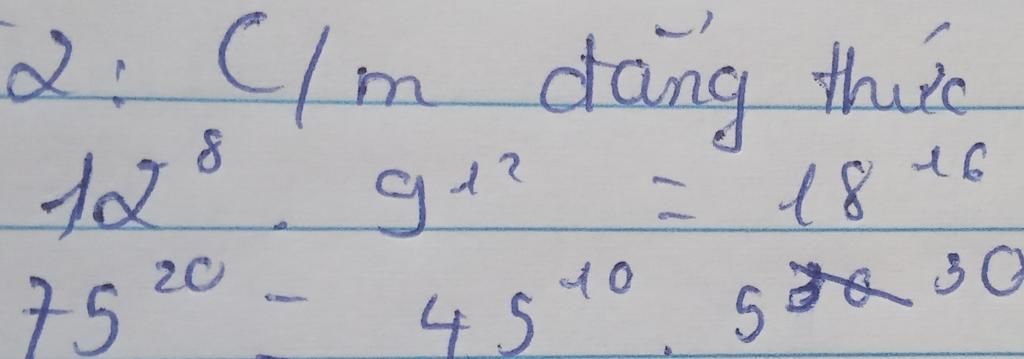 2: C/m đẳng thức
12⁸ . 9¹² = 18¹⁶
75²⁰ = 45¹⁰ . 5³⁰